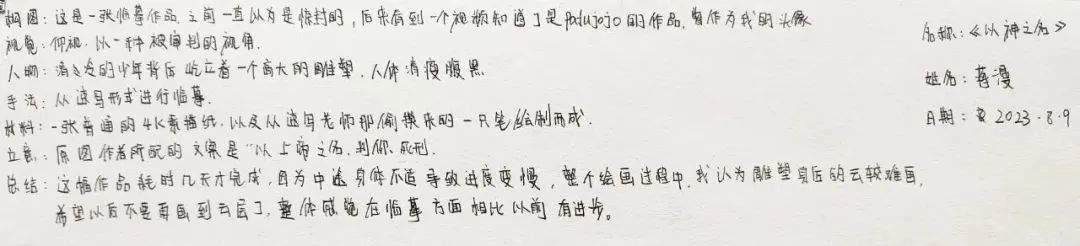 构图：这是一张临摹作品，之前一直以为是惊封的，后来看到一个视频知道了是Padujojo的作品，曾作为我的头像
视觉：仰视，以一种被审判的视角．
人物：清冷的少年背后屹立着一个高大的雕塑，人体清瘦腹黑
手法：从速写形式进行临摹．
材料：一张普通的4K素描纸，以及从速写老师那偷摸来的一只笔绘制而成．
立意：原图作者所配的文案是“以上帝之名，判你死刑．
总结：这幅作品耗时几天才完成，因为中途身体不适导致进度变慢，整个绘画过程中，我认为雕塑身后的云较难画，
希望以后不要再画到云层了，整体感觉在临摹方面相比以前有进步。
名称：《以神之名》
姓名：蒋漫
日期：2023.8.9